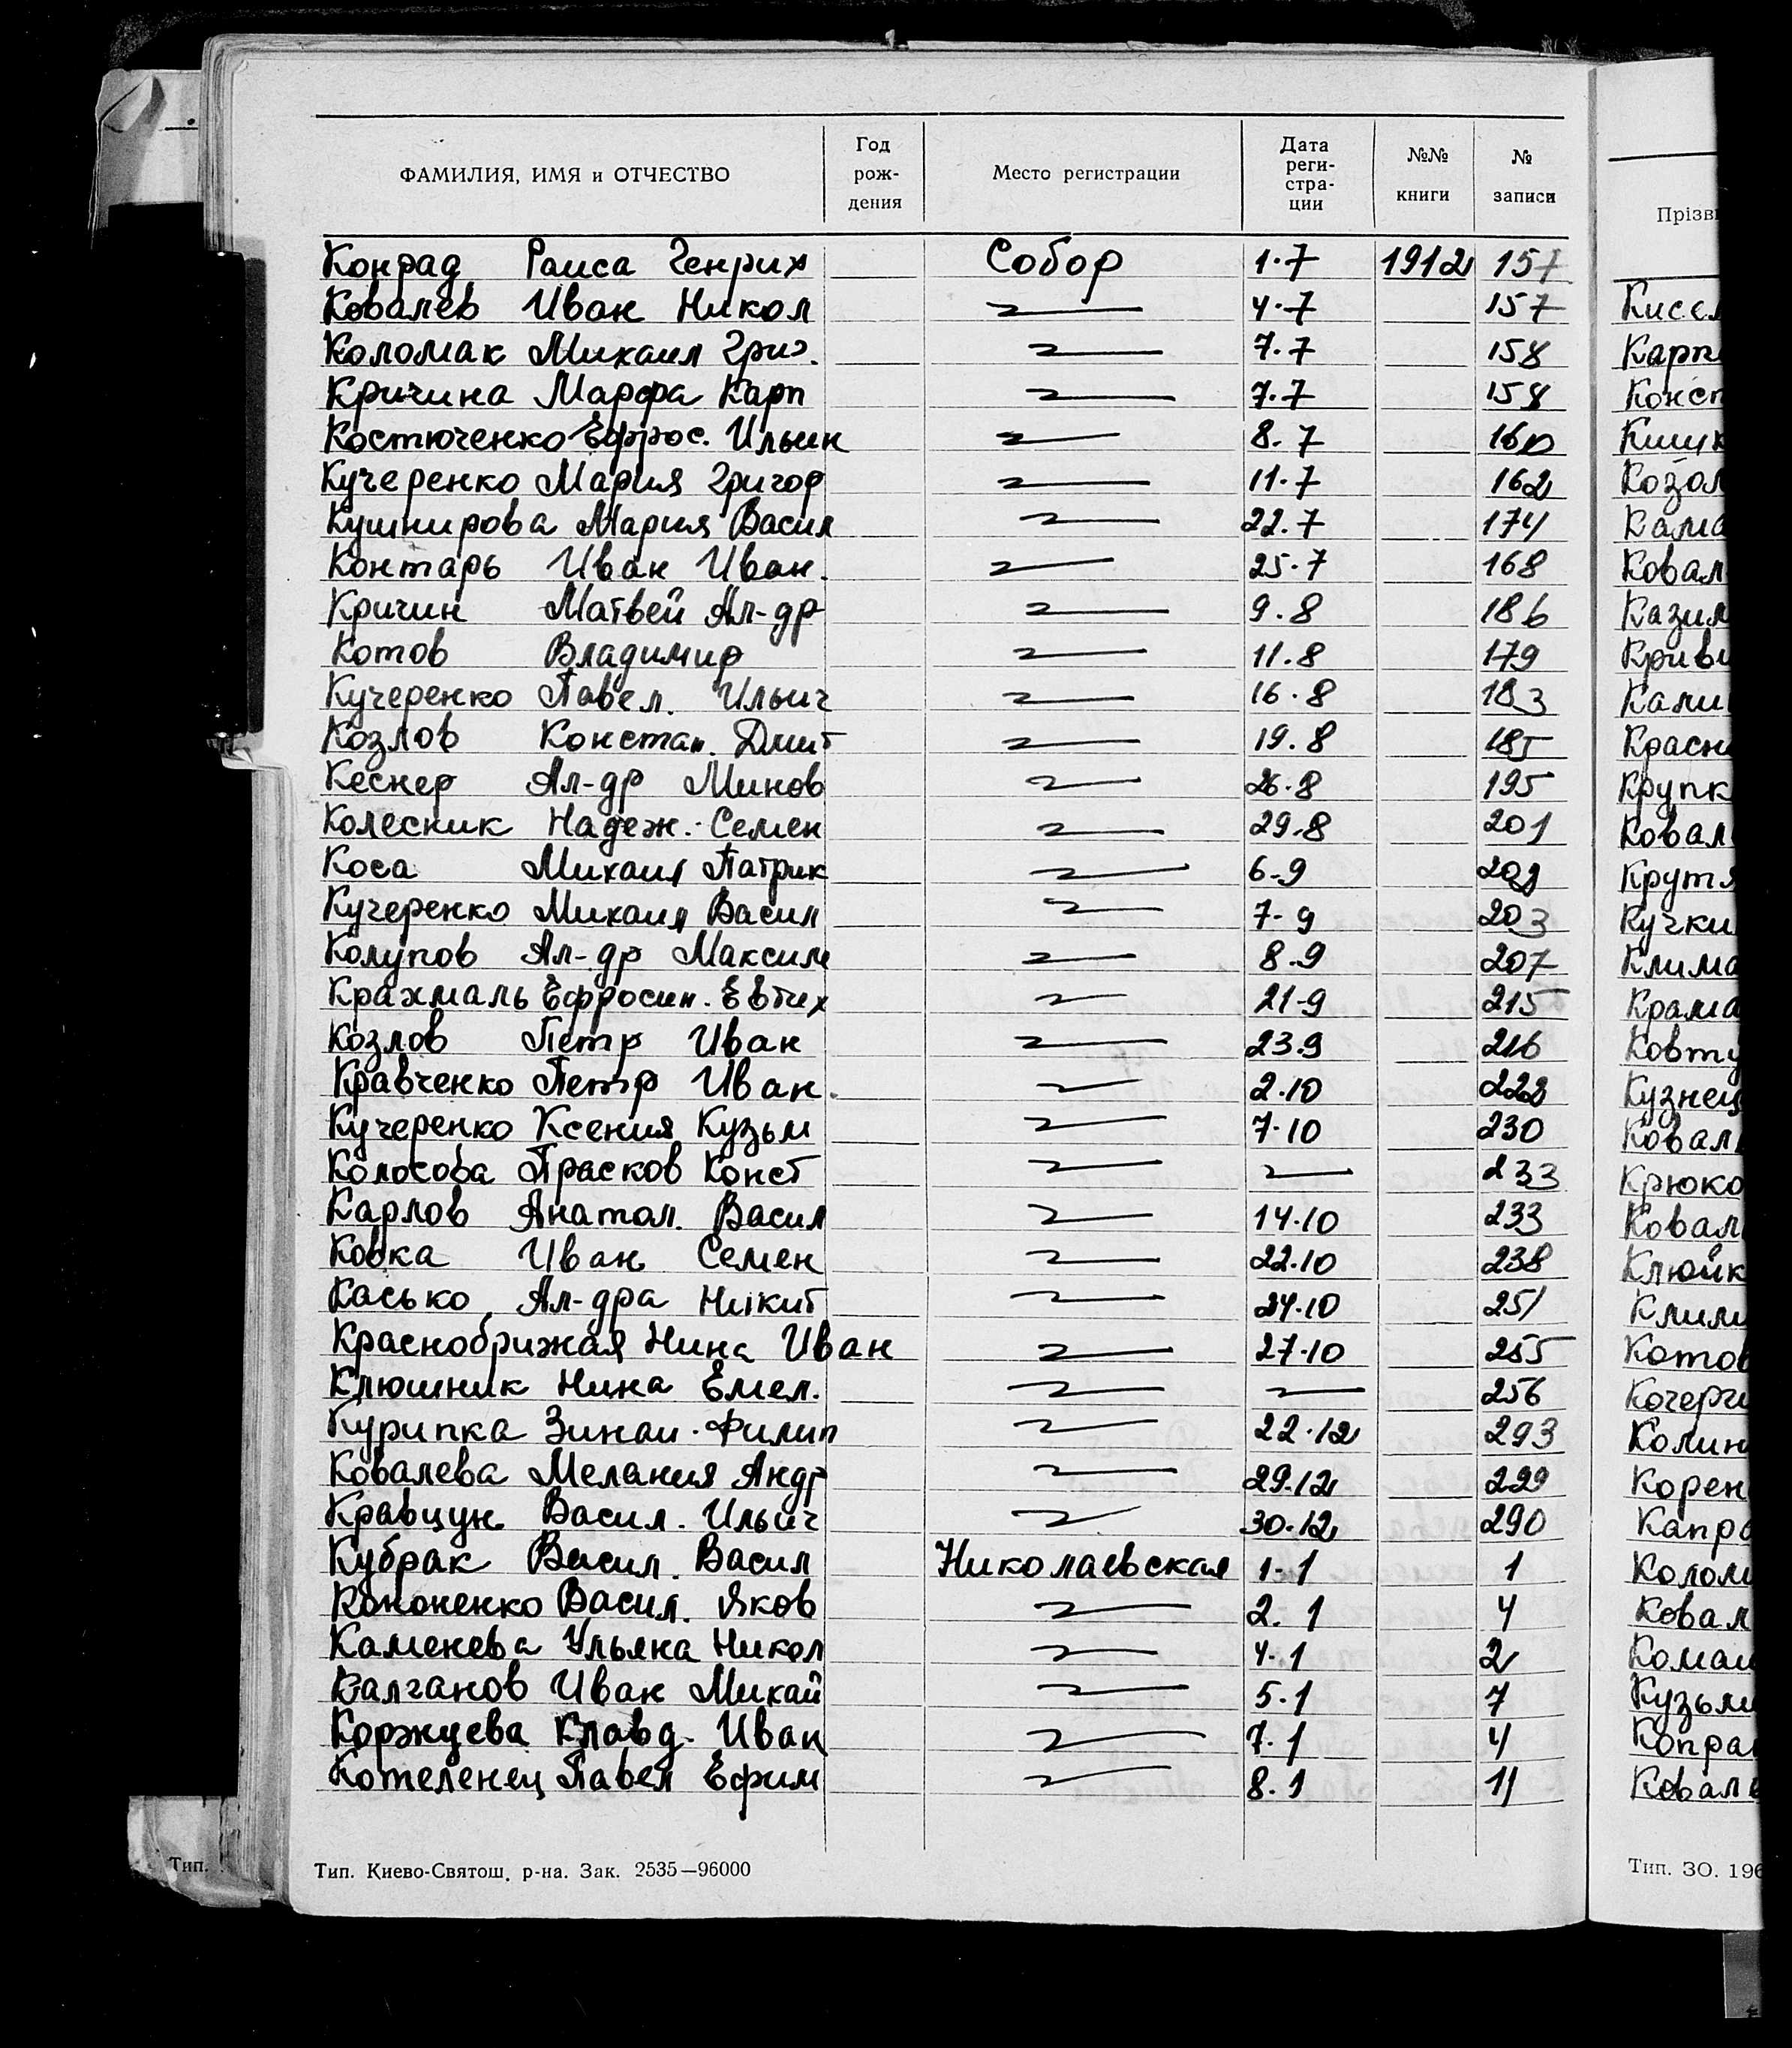 ФАМИЛИЯ, ИМЯ и ОТЧЕСТВО Год рож- дения Место регистрации Дата реги- стра- ции №№ книги № записи
Конрад Раиса Генрих Собор 1.7 1912 157
Ковалев Иван Никол 4.7 157
Коломак Михаил Григ. 7.7 158
Кричина Марфа Карп 7.7 158
Костюченко Ефрос. Ильин 8.7 160
Кучеренко Мария Григор 11.7 162
Кушнирова Мария Васил 22.7 174
Контарь Иван Иван. 25.7 168
Кричин Матвей Ал-др 9.8 186
Котов Владимир 11.8 179
Кучеренко Павел. Ильич 16.8 183
Козлов Констан. Дмит 19.8 185
Кеснер Ал-др Минов 26.8 195
Колесник Надеж. Семен 29.8 201
Коса Михаил Патрик 6-9 202
Кучеренко Михаил Васил 7-9 203
Колупов Ал-др Максим 8.9 207
Крахмаль Ефросин. Евтих 21-9 215
Козлов Петр Иван 23.9 216
Кравченко Петр Иван. 2.10 222
Кучеренко Ксения Кузьм 7-10 230
Колосова Прасков Конст 233
Карлов Анатол. Васил 14.10 233
Ковка Иван Семен 22.10 238
Касько Ал-дра Никит 24.10 251
Краснобрижая Нина Иван 27-10 255
Клюшник Нина Емел. 256
Курипка Зинаи. Филип 22.12 293
Ковалева Мелания Андр 29.12 299
Кравцун Васил. Ильич 30.12 290
Кубрак Васил. Васил Николаевская 1-1 1
Кононенко Васил. Яков 2.1 4
Каменева Ульяна Никол 4.1 2
Калганов Иван Михай 5.1 7
Коржцева Клавд. Иван 7.1 4
Котеленец Павел Ефим 8.1 11
Тип. Киево-Святош. р-на. Зак. 2535—96000
Тип.
Прізв
Кисел
Карп
Конст
Козол
Кама
Ковал
Казим
Криви
Кали
Красн
Крупк
Ковал
Крутя
Кучки
Клима
Крама
Ковту
Кузнец
Ковал
Крюко
Ковал
Клюйк
Клим
Котов
Кочерги
Колин
Корен
Капр
Колом
Ковал
Коман
Кузьм
Копра
Ковал
Тип. ЗО. 196